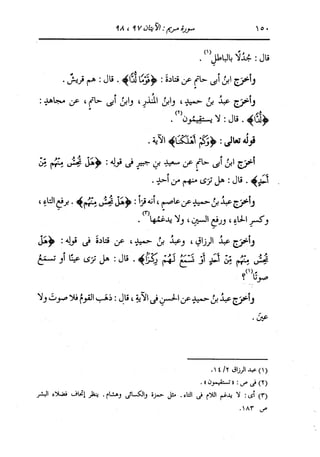 ١٥٠ سورة مريم : الآيتان ٩٧ ، ٩٨
قال : جُدُلًا بالباطلِ(١) .
وأخرج ابنُ أبى حاتمٍ عن قتادةَ : ﴿قَوْمًا لُّدًّا﴾ . قال : هم قريشٌ .
وأخرج عبدُ بنُ حميدٍ ، وابنُ المنذرِ ، وابنُ أبى حاتمٍ ، عن مجاهدٍ :
﴿لُّدًّا﴾ . قال : لا يستقيمون(٢) .
قولُه تعالى : ﴿وَكَمْ أَهْلَكْنَا﴾ الآية .
أخرج ابنُ أبى حاتمٍ عن سعيدِ بنِ جبيرٍ فى قولِه : ﴿هَلْ تُحِسُّ مِنْهُم مِّنْ
أَحَدٍ﴾ . قال : هل ترَى منهم من أحدٍ .
وأخرج عبدُ بنُ حميدٍ عن عاصمٍ ، أنه قرَأ : ﴿هَلْ تُحِسُّ مِنْهُم﴾ . برفعِ التاءِ ،
وكسرِ الحاءِ ، ورفعِ السينِ ، ولا يدغمُها(٣) .
وأخرج عبدُ الرزاقِ ، وعبدُ بنُ حميدٍ ، عن قتادةَ فى قولِه : ﴿هَلْ
تُحِسُّ مِنْهُم مِّنْ أَحَدٍ أَوْ تَسْمَعُ لَهُمْ رِكْزًا﴾ . قال : هل ترَى عينًا أو تسمعُ
صوتًا(١)؟
وأخرج عبدُ بنُ حميدٍ عن الحسنِ فى الآيةِ ، قال : ذهَب القومُ فلا صوتَ ولا
عينَ .
(١) عبد الرزاق ٢/ ١٤.
(٢) فى ص : « تستقيمون » .
(٣) أى : لا يدغم اللام فى التاء ، مثل حمزة والكسائى وهشام . ينظر إتحاف فضلاء البشر
ص ١٨٣.